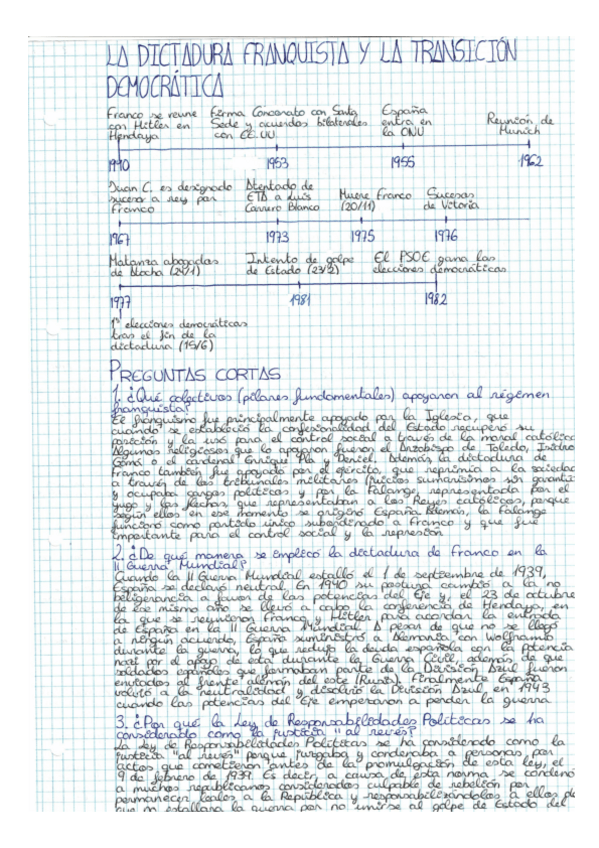 LA DICTADURA FRANQUISTA Y LA TRANSICIÓN
DEMOCRÁTICA
Franco se reune Firma Concordato con Santa España
con Hitler en Sede y acuerdos bilaterales entra en Reunión de
Hendaya con EE.UU. la ONU Munich
1940 1953 1955 1962
Juan C. es designado Atentado de Muere Franco Sucesos
sucesor a rey por ETA a Luis (20/11) de Vitoria
Franco Carrero Blanco
1967 1973 1975 1976
Matanza abogados Intento de golpe El PSOE gana las
de Atocha (24/1) de Estado (23/2) elecciones democráticas
1977 1981 1982
1º elecciones democráticas
tras el fin de la
dictadura (15/6)
PREGUNTAS CORTAS
1. ¿Qué colectivos (pilares fundamentales) apoyaron al régimen
franquista?
El franquismo fue principalmente apoyado por la Iglesia, que
cuando se estableció la confesionalidad del Estado recuperó su
posición y la usó para el control social a través de la moral católica
Algunos religiosos que lo apoyaron fueron el Arzobispo de Toledo, Isidro
Gomá o el cardenal Enrique Pla y Deniel. Además, la dictadura de
Franco también fue apoyada por el ejército, que reprimía a la sociedad
a través de los tribunales militares (juicios sumarísimos sin garantías
y ocupaba cargos políticos y por la Falange, representada por el
yugo y las flechas que representaban a los Reyes católicos, porque
según ellos en ese momento se originó España. Además, la Falange
funcionó como partido único subordinado a Franco y que fue
importante para el control social y la represión
2. ¿De qué manera se implicó la dictadura de Franco en la
II Guerra Mundial?
Cuando la II Guerra Mundial estalló el 1 de septiembre de 1939,
España se declaró neutral. En 1940 su postura cambió a la no
beligerancia a favor de las potencias del Eje y, el 23 de octubre
de ese mismo año se llevó a cabo la conferencia de Hendaya, en
la que se reunieron Franco y Hitler para acordar la entrada
de España en la II Guerra Mundial. A pesar de que no se llegó
a ningún acuerdo, España suministró a Alemania con Wolframio
durante la guerra, lo que redujo la deuda española con la potencia
nazi por el apoyo de esta durante la Guerra Civil, además de que
soldados españoles que formaban parte de la División Azul fueron
enviados al frente alemán del este (Rusia). Finalmente España
volvió a la neutralidad y disolvió la División Azul, en 1943
cuando las potencias del Eje empezaron a perder la guerra
3. ¿Por qué la Ley de Responsabilidades Políticas se ha
considerado como la justicia "al revés"?
La Ley de Responsabilidades Políticas se ha considerado como la
justicia "al revés" porque juzgaba y condenaba a personas por
actos que cometieron antes de la promulgación de esta ley, el
9 de febrero de 1939. Es decir, a causa de esta norma se condenó
a muchos republicanos considerados culpable de rebelión por
permanecer leales a la República y responsabilizándolos a ellos de
que estallara la guerra por no unirse al golpe de Estado del